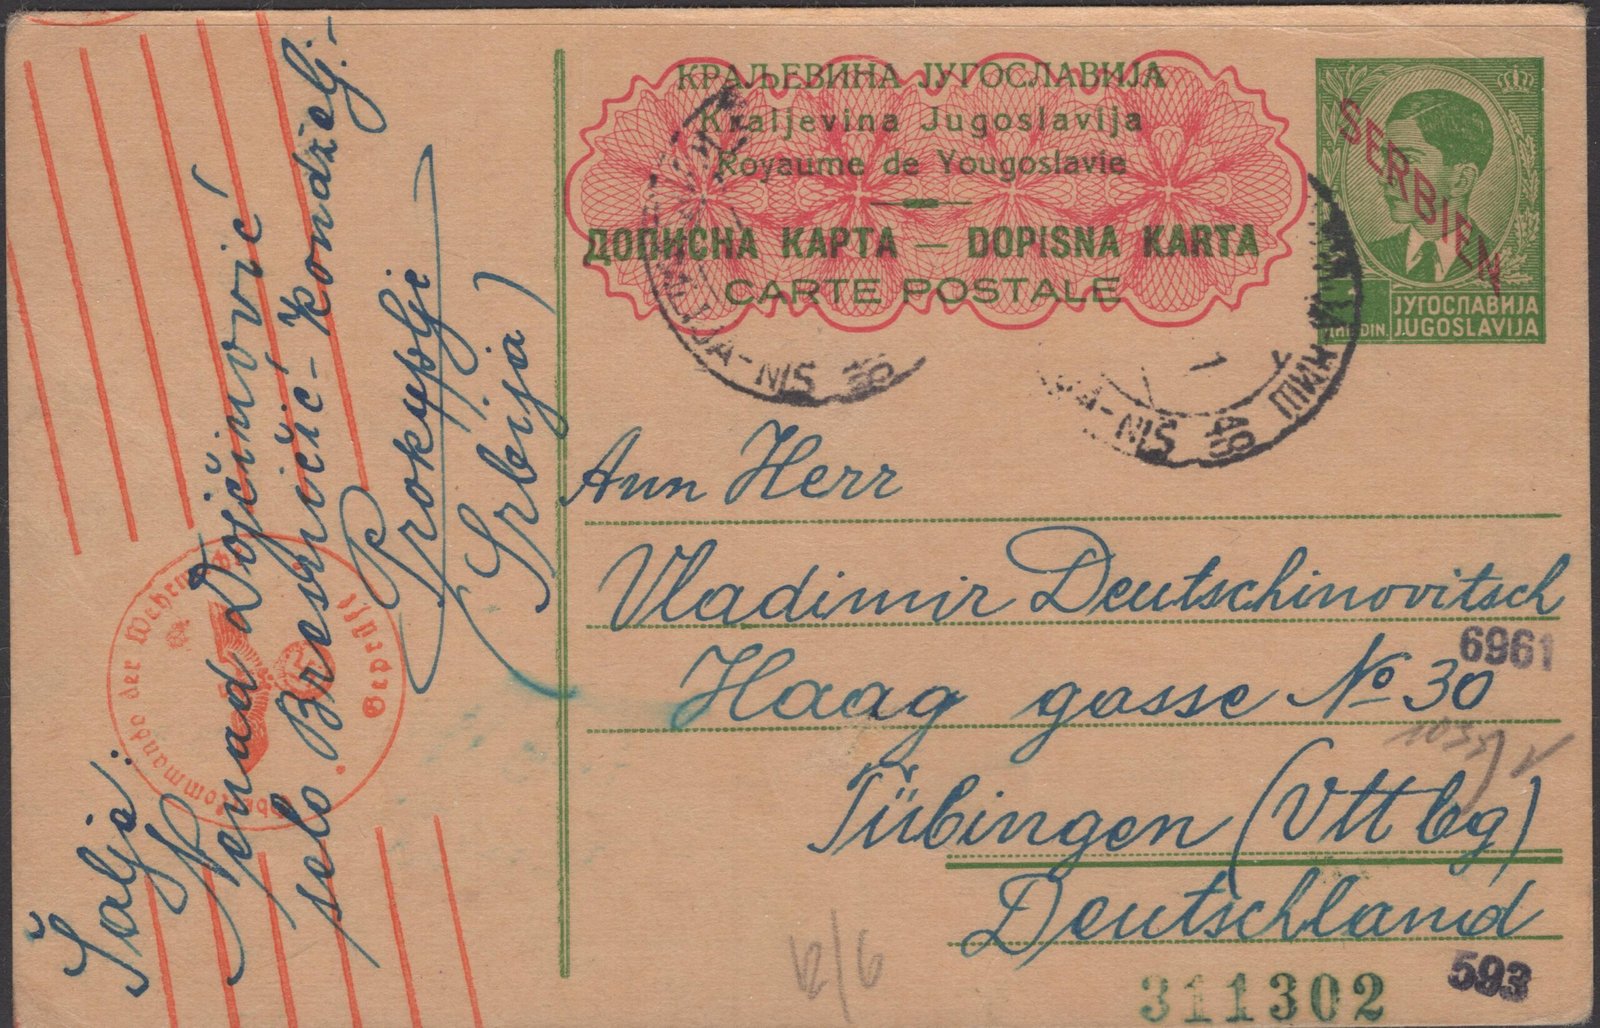 Šalje:
Nenad Dojčinović
selo Bresničić - Kondželj.-
Prokuplje
(Srbija)
Oberkommando der Wehrmacht
Geprüft
КРАЉЕВИНА ЈУГОСЛАВИЈА
Kraljevina Jugoslavija
Royaume de Yougoslavie
ДОПИСНА КАРТА — DOPISNA KARTA
CARTE POSTALE
SERBIEN
DIN.
ЈУГОСЛАВИЈА
JUGOSLAVIJA
JA-NIŠ 48
A-NIŠ 48
Ann Herr
Vladimir Deutschinovitsch
6961
Haag gasse № 30
Tübingen (Vttbg)
Deutschland
12/6
593
311302